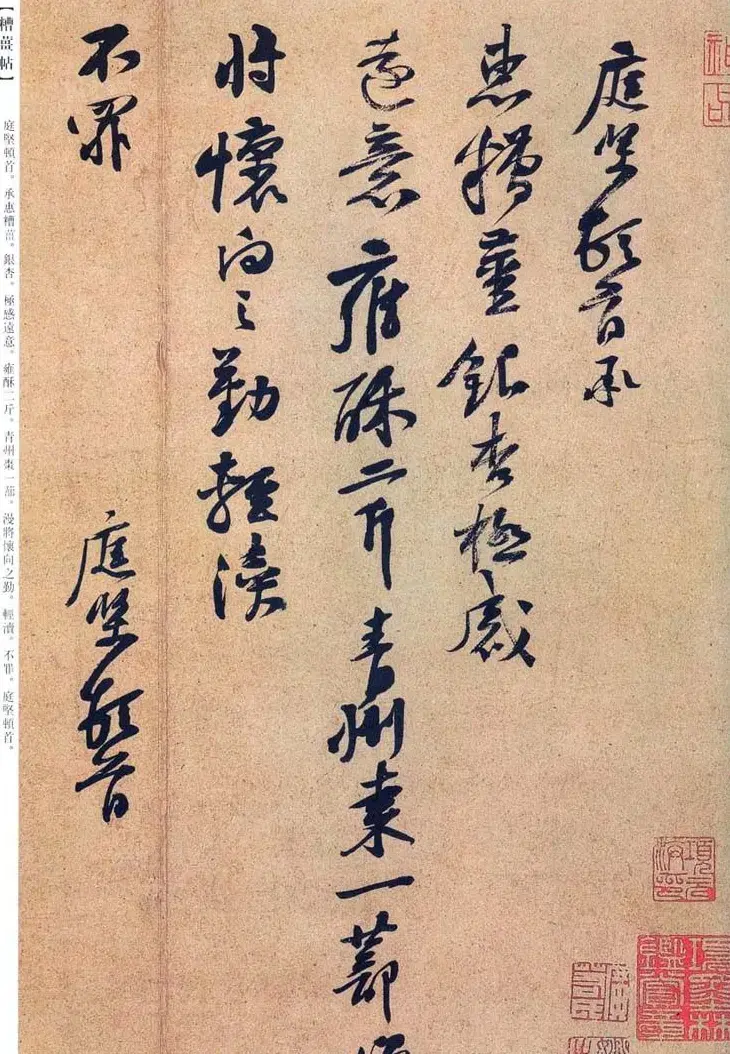 庭堅頓首承
惠糟薑銀杏極感
遠意雍酥二斤青州棗一蔀
將懷向之勤輕瀆
不罪
庭堅頓首
【糟薑帖】
庭堅頓首。承惠糟薑。銀杏。極感遠意。雍酥二斤。青州棗一蔀。漫將懷向之勤。輕瀆。不罪。庭堅頓首。